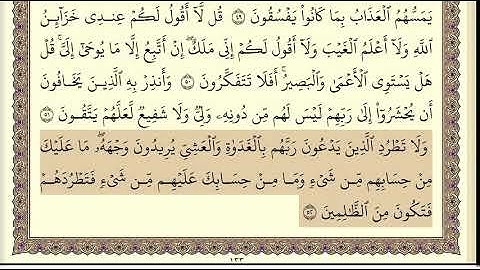 يَمَسُّهُمُ ٱلۡعَذَابُ بِمَا كَانُواْ يَفۡسُقُونَ ٤٩ قُل لَّآ أَقُولُ لَكُمۡ عِندِي خَزَآئِنُ
ٱللَّهِ وَلَآ أَعۡلَمُ ٱلۡغَيۡبَ وَلَآ أَقُولُ لَكُمۡ إِنِّي مَلَكٌۖ إِنۡ أَتَّبِعُ إِلَّا مَا يُوحَىٰٓ إِلَيَّۚ قُلۡ
هَلۡ يَسۡتَوِي ٱلۡأَعۡمَىٰ وَٱلۡبَصِيرُۚ أَفَلَا تَتَفَكَّرُونَ ٥٠ وَأَنذِرۡ بِهِ ٱلَّذِينَ يَخَافُونَ
أَن يُحۡشَرُوٓاْ إِلَىٰ رَبِّهِمۡ لَيۡسَ لَهُم مِّن دُونِهِۦ وَلِيّٞ وَلَا شَفِيعٞ لَّعَلَّهُمۡ يَتَّقُونَ ٥١
وَلَا تَطۡرُدِ ٱلَّذِينَ يَدۡعُونَ رَبَّهُم بِٱلۡغَدَوٰةِ وَٱلۡعَشِيِّ يُرِيدُونَ وَجۡهَهُۥۖ مَا عَلَيۡكَ
مِنۡ حِسَابِهِم مِّن شَيۡءٖ وَمَا مِنۡ حِسَابِكَ عَلَيۡهِم مِّن شَيۡءٖ فَتَطۡرُدَهُمۡ
فَتَكُونَ مِنَ ٱلظَّٰلِمِينَ ٥٢
١٣٣